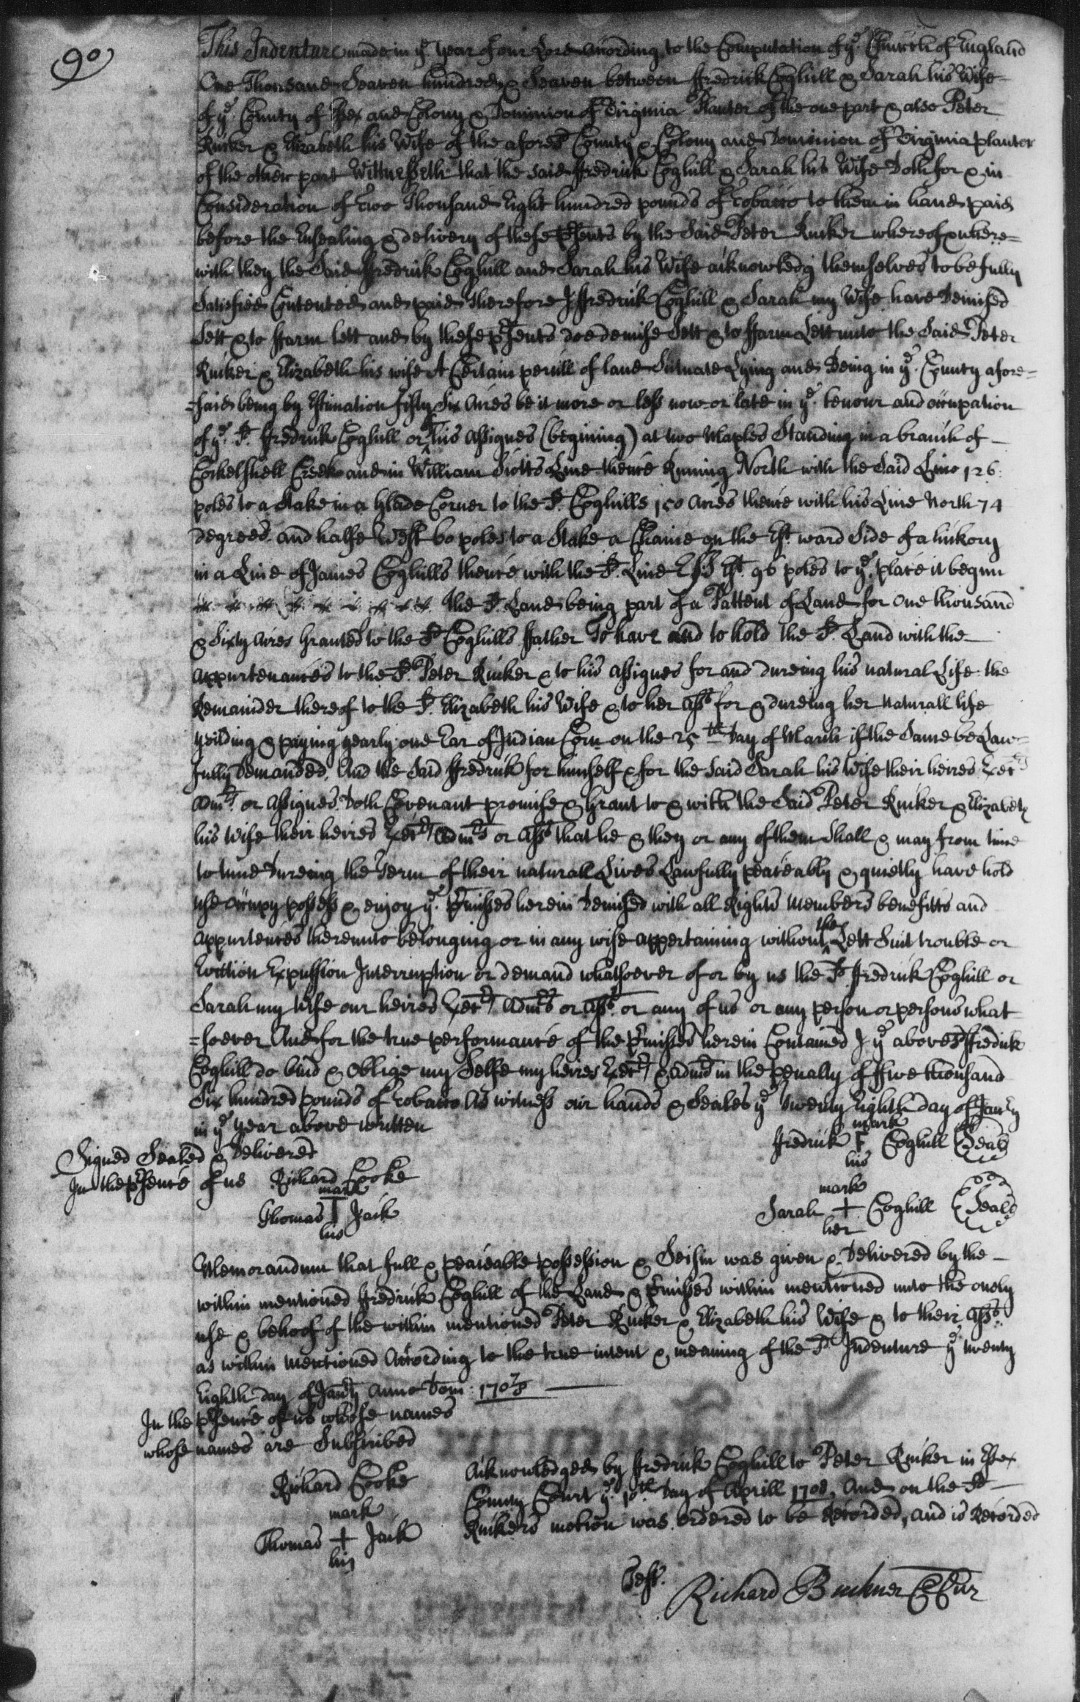 90
This Indenture made in ye. Year of our Lord according to the Computation of ye. Church of England
One Thousand Seaven hundred & Seaven between Fredrick Coghill & Sarah his Wife
of ye. County of Essex and Colony & Dominion of Virginia Planter of the one part & also Peter
Rucker & Elizabeth his Wife of the aforesd. County & Colony and Dominion of Virginia planter
of the other part Wittnesseth that the said Fredrick Coghill & Sarah his Wife Doth for & in
Consideration of Two Thousand Eight hundred pounds of Tobacco to them in hand paid
before the Ensealing & delivery of these psents by the Said Peter Rucker whereof & where=
with they the Said Fredrick Coghill and Sarah his Wife acknowledg themselves to be fully
Satisfied Contented and paid therefore I Fredrick Coghill & Sarah my Wife have Demised
Sett & to Farm lett and by these psents doe demise Sett & to Farm Lett unto the Said Peter
Rucker & Elizabeth his wife A Certain percill of land Situate Lying and Being in ye. County afore=
=said being by Estimation fifty Six Acres be it more or less now or late in ye. tenour and occupation
of ye. sd. Fredrick Coghill or his assignes (begining) at two Maples Standing in a branch of
Cockelshell Creek and in William Scotts Line thence Runing North with the Said Line 126
poles to a Stake in a Glade Corner to the sd. Coghills 150 Acres thence with his Line North 74
degrees and halfe West 60 poles to a Stake a Chaine on the Est ward Side of a hickory
in a Line of James Coghills thence with the sd. Line Est 96 poles to ye. place it begun
the sd. Land being part of a Pattent of Land for one thousand
& Sixty Acres Granted to the sd. Coghills Father To have and to hold the sd. Land with the
appurtenances to the sd. Peter Rucker & to his assignes for and dureing his natural Life the
Remainder thereof to the sd. Elizabeth his Wife & to her asss. for & dureing her naturall life
Yeilding & paying yearly one Ear of Indian Corn on the 25th Day of March if the Same be Law=
fully Demanded. And the Said Fredrick for himself & for the Said Sarah his Wife their heires Exectrs
Admrs. or assignes Doth Covenant promise & Grant to & with the Said Peter Rucker & Elizabeth
his Wife their heires Exectrs Admrs or Asss that he & they or any of them Shall & may from time
to time Dureing the Term of their naturall Lives Lawfully peaceably & quietly have hold
use occupy possess & enjoy ye. pmisses herein Demised with all Rights Members benefitts and
appurtences thereunto belonging or in any wise appertaining without the Lett Suit trouble or
Eviction Expulsion Interruption or demand whatsoever of or by us the sd. Fredrick Coghill or
Sarah my Wife our heires Exectrs Admrs or Asss. or any of us or any person or persons what
=soever And for the true performance of the pmisses herein Contained I ye abovesd Fredrick
Coghill do bind & oblige my Selfe my heires Exectrs & Admrs in the penalty of Five thousand
Six hundred pounds of Tobacco As witness our hands & Seales ye Twenty Eighth day of Janry
in ye Year above written
Signed Sealed & Delivered
In the psence of us Richard Cooke
mark
Thomas T Jack
his
mark
Fredrick F Coghill (Seal)
his
mark
Sarah + Coghill (Seal)
her
Memorandum that full & peaceable possession & Seisin was given & Delivered by the
within mentioned Fredrick Coghill of the Land & pmisses within mentioned unto the only
use & behoof of the within mentioned Peter Rucker & Elizabeth his Wife & to their Asss.
as within Mentioned According to the true intent & meaning of the sd. Indenture ye. twenty
Eighth day of Janry Anno Dom: 1707/8
In the psence of us whose names
whose names are Subscribed
Richard Cooke
mark
Thomas + Jack
his
Acknowledged by Fredrick Coghill to Peter Rucker in Essex
County Court ye. 10th Day of Aprill 1708. And on the sd
Ruckers motion was ordered to be Recorded, and is Recorded
Test.
Richard Buckner Cl Cur